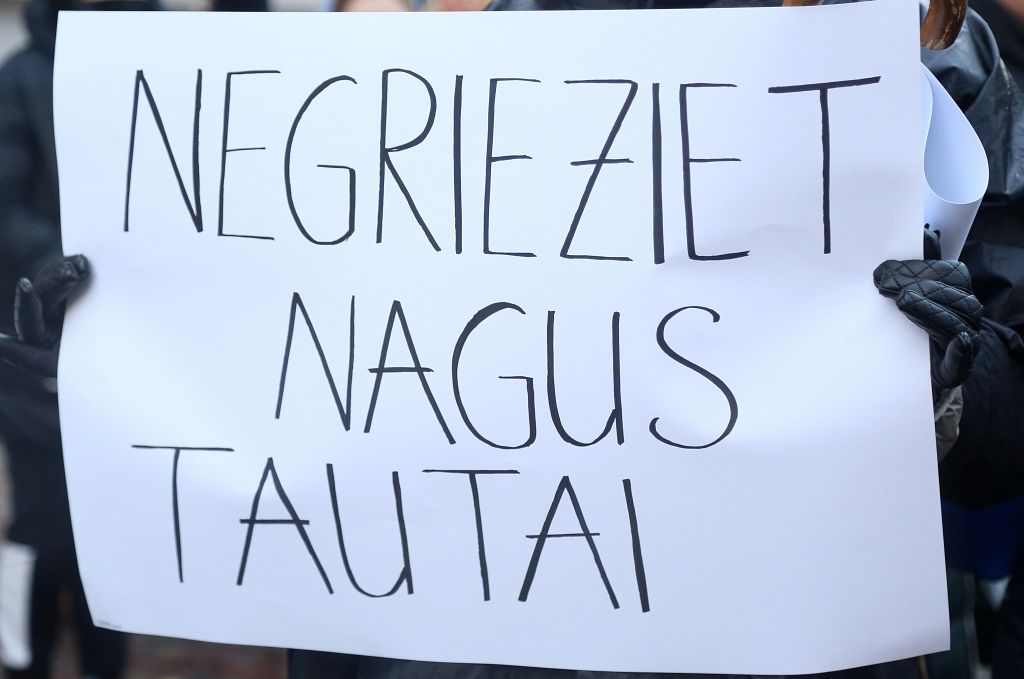 NEGRIEZIET
NAGUS
TAUTAI